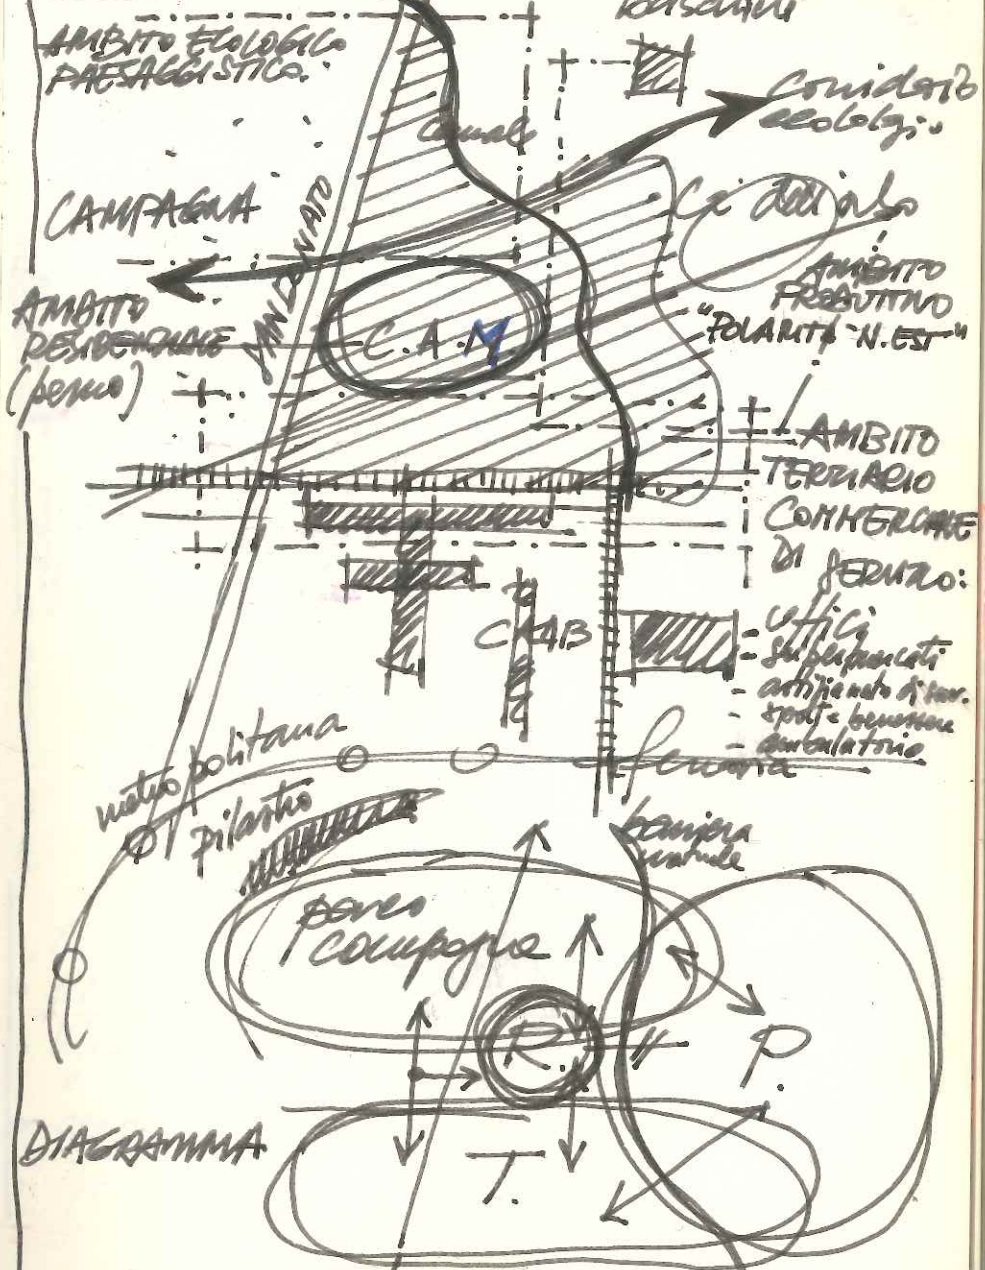 AMBITO ECOLOGICO
PAESAGGISTICO.
Canale
corridoio
ecologi..
CAMPAGNA
Ca' dell'orbo
AMBITO
RESIDENZIALE
(perno)
C.A.M
AMBITO
"POLARITÀ N.EST"
AMBITO
TERZIARIO
COMMERCIALE
DI SERVIZIO:
CAAB
- uffici
- supermercati
- artigianato di ser.
- sport e benessere
- ambulatorio
metropolitana
ferrovia
pilastro
barriera
naturale
parco
campagna
R.
P.
DIAGRAMMA
T.